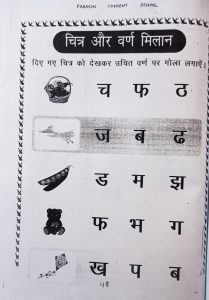 PARAGON CONVENT SCHOOL
चित्र और वर्ण मिलान
दिए गए चित्र को देखकर उचित वर्ण पर गोला लगाएँ।
च फ ठ
ज ब ढ
ड म झ
फ भ ग
ख प ब
५१